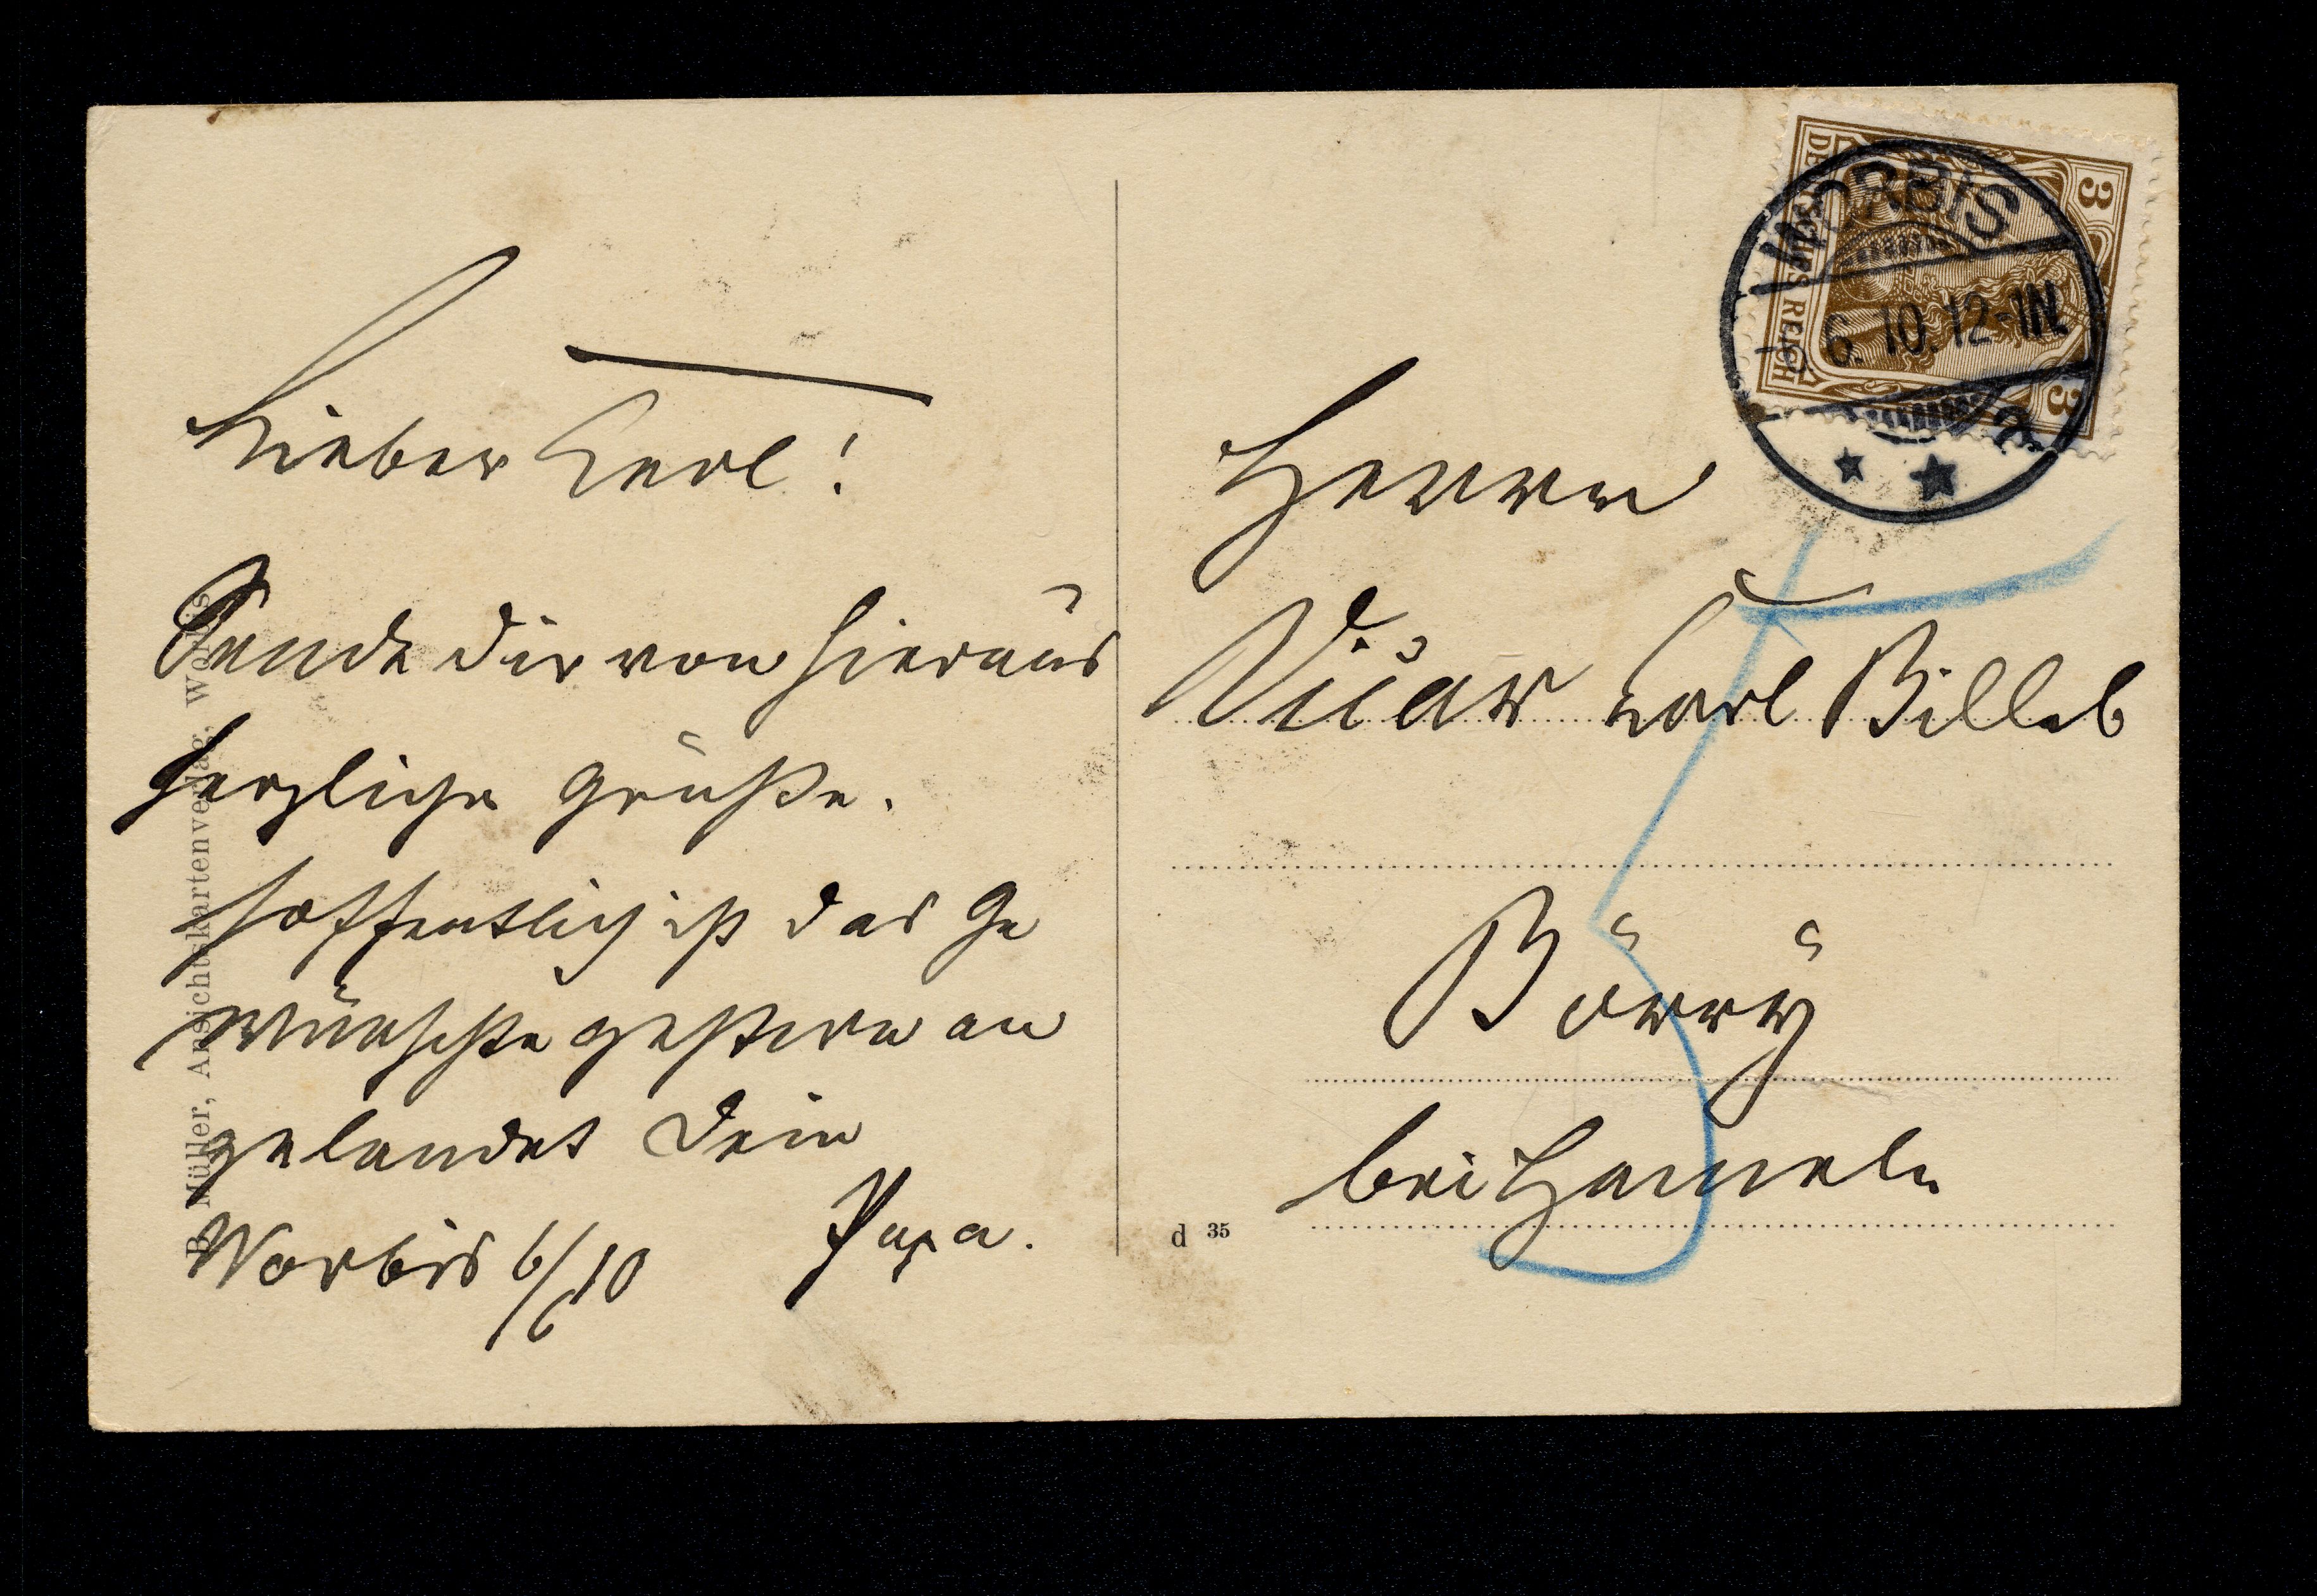 Lieber Carl!
Sende dir von hieraus
herzliche Grüße.
Hoffentlich ist das Ge
wünschte gestern an
gelandet Dein
Papa.
Worbis 6/6 10
B. Müller, Ansichtskartenverlag, Worbis
DEUTSCHES REICH
3
3
WORBIS
6. 10. 12-1N.
a
Herrn
Carl Billeb
Börry
bei Hameln
d 35
5